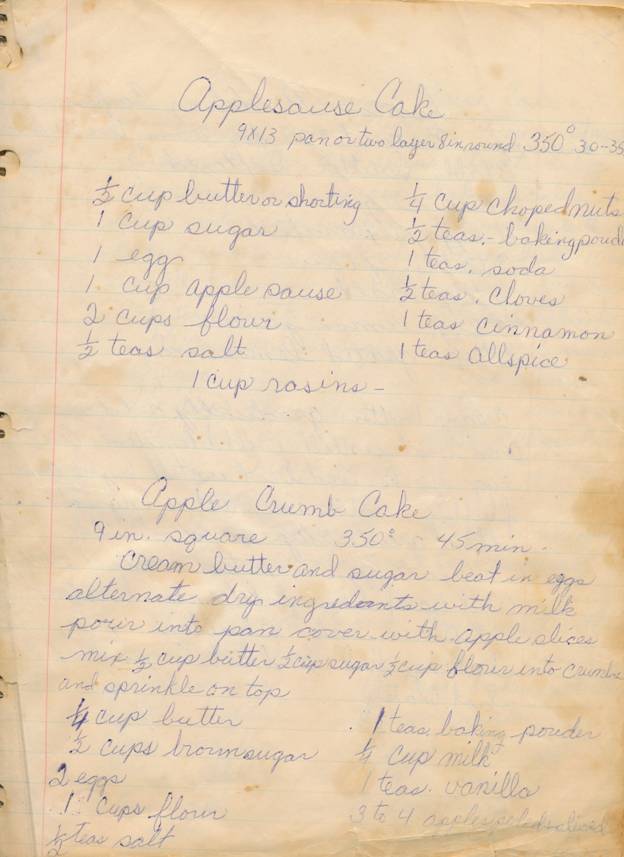 Applesause Cake
9X13 pan or two layer 8in round 350° 30-35
½ cup butter or shorting
1 cup sugar
1 egg
1 cup apple sause
2 cups flour
½ teas salt
¼ cup choped nuts
½ teas. - baking powd
1 teas. soda
½ teas. Cloves
1 teas cinnamon
1 teas allspice
1 cup rasins -
Apple Crumb Cake
9 in. square 350° - 45 min.
Cream butter and sugar beat in eggs
alternate dry ingredeants with milk
pour into pan cover with apple slices
mix ½ cup butter ½ cup sugar ½ cup flour into crumbs
and sprinkle on top
¼ cup butter
½ cups brown sugar
2 eggs
1 cups flour
½ teas salt
1 teas. baking powder
¼ cup milk
1 teas. vanilla
3 to 4 apples peled + sliced